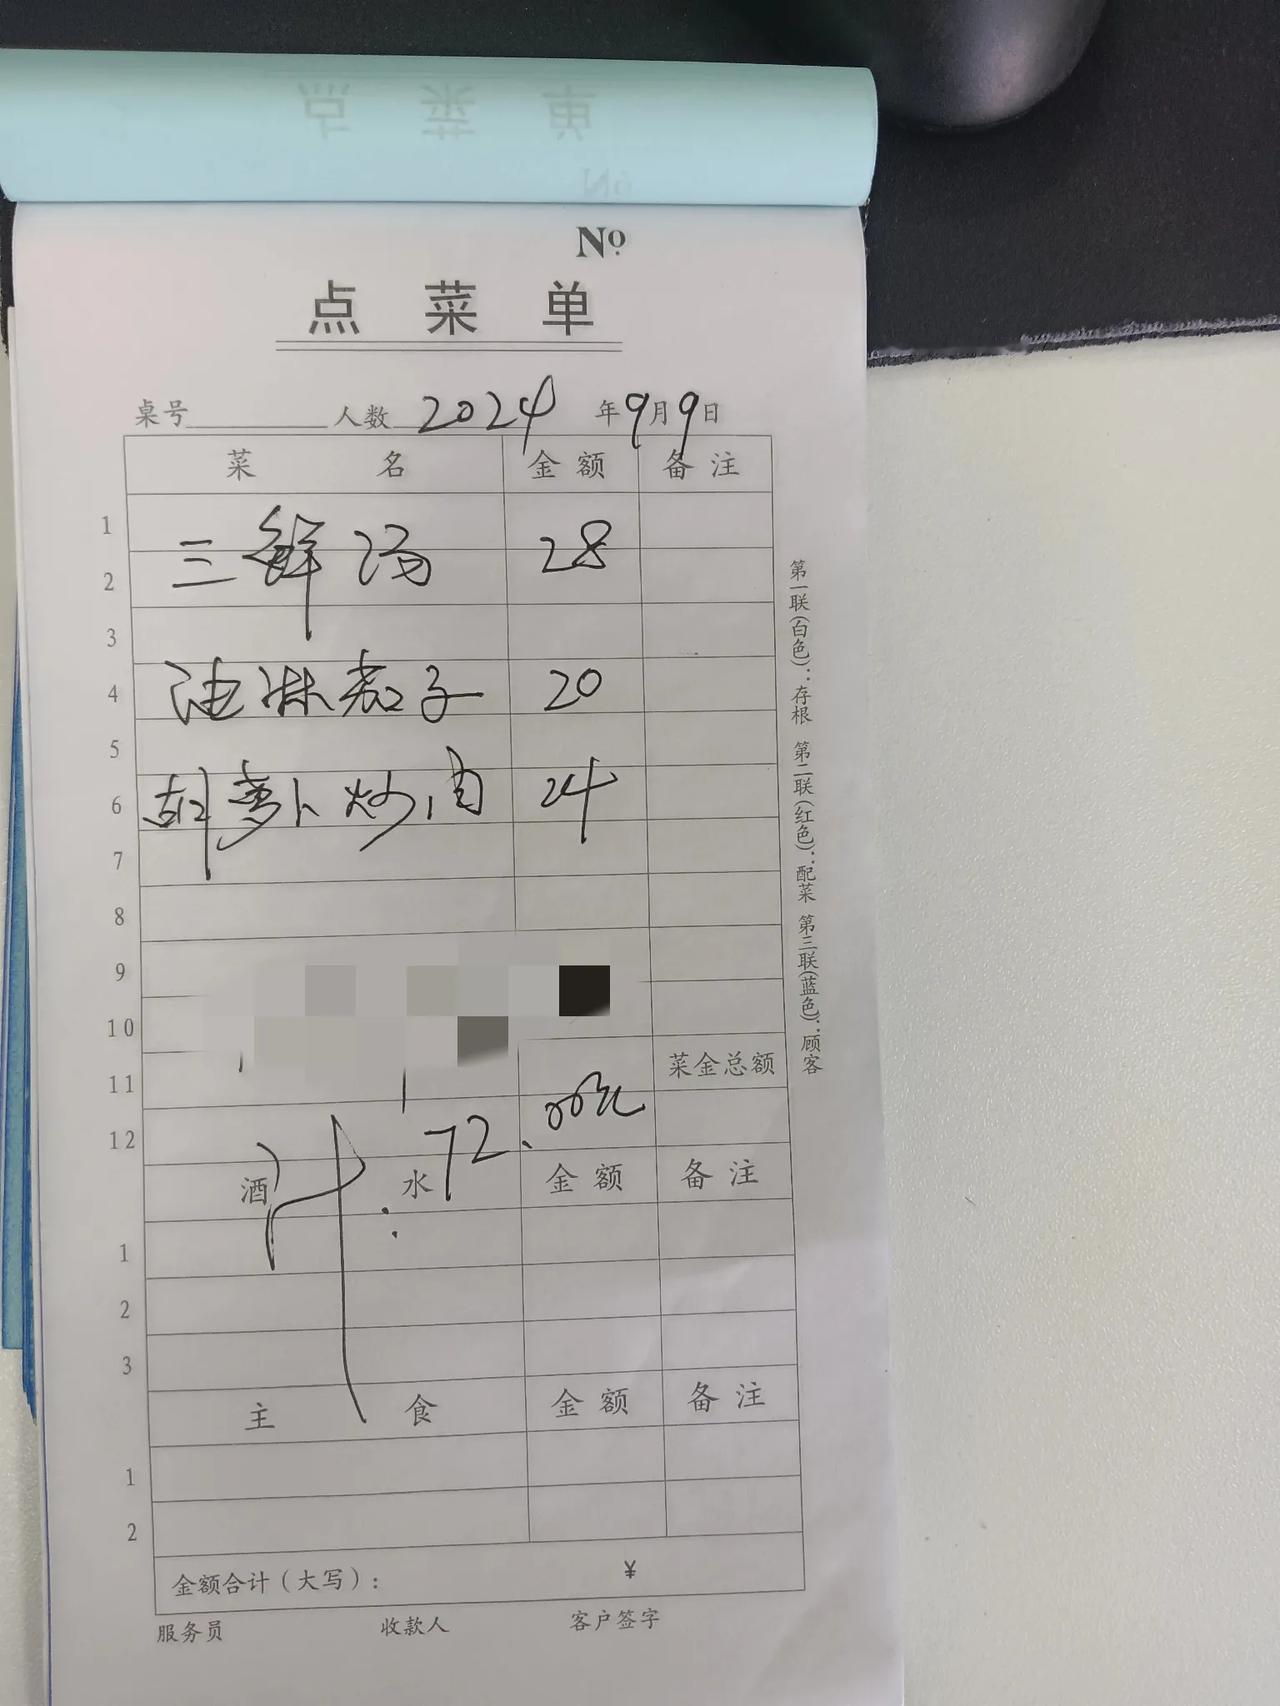 点菜单
No
No.
点 菜 单
桌号 人数 2024 年 9 月 9 日
菜 名 金 额 备 注
1
三鲜汤 28
2
3
4 油淋茄子 20
5
6 胡萝卜炒肉 24
7
8
9
10
11 菜金总额
12 计:72.00元
酒 水 金 额 备 注
1
2
3
主 食 金 额 备 注
1
2
金额合计(大写): ¥
服务员 收款人 客户签字
第一联(白色):存根 第二联(红色):配菜 第三联(蓝色):顾客